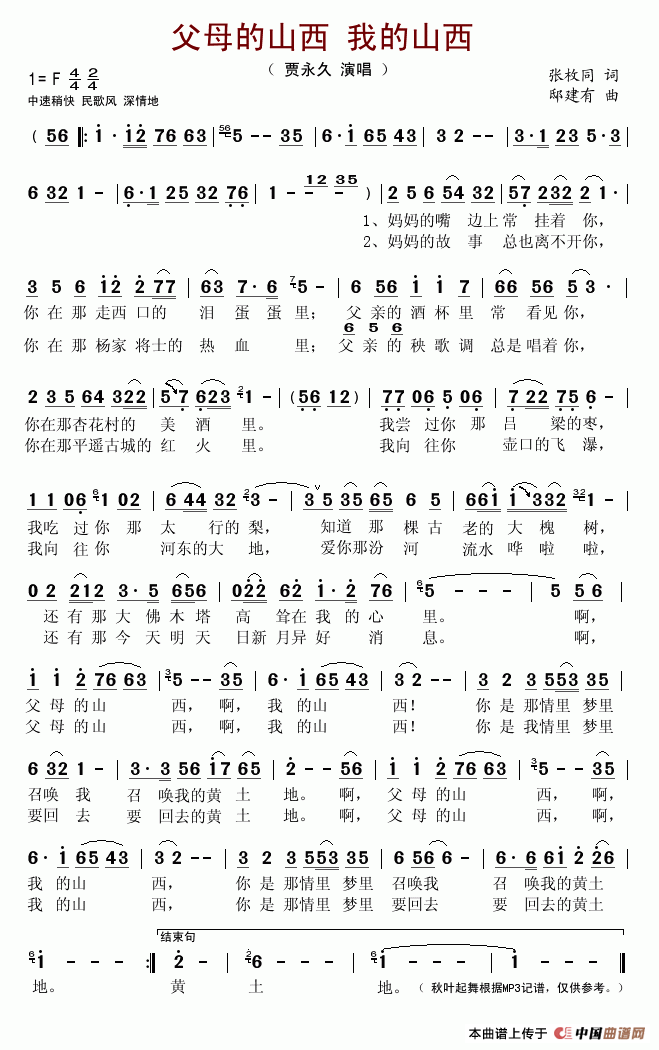 父母的山西 我的山西
（ 贾永久 演唱 ）
1= F 4/4 2/4
张枚同 词
中速稍快 民歌风 深情地
邸建有 曲
( 56 ‖: 1· 12 76 63 | 5 - - 35 | 6·1 65 43 | 3 2 - - | 3·1 23 5·3 |
6 32 1 - | 6·1 25 32 76 | 1 - - - ) | 2 5 6 54 32 | 57 232 2 1· |
12 35
1、妈妈的嘴 边上常 挂着 你，
2、妈妈的故 事 总也离不开你，
3 5 6 12 277 | 63 7·6 5 - | 6 56 1 6 | 66 56 56 53· |
你 在 那 走西 口的 泪 蛋 蛋 里； 父 亲的 酒 杯 里 常 看见 你，
6 5 6
你 在 那 杨家 将士的 热 血 里； 父 亲 的 秧 歌 调 总是 唱着 你，
2 35 64 322 | 57 623 1 - | (56 12) | 77 06 5 06 | 7 22 75 6 - |
你在那杏花村的 美 酒 里。 我尝 过你 那 吕 梁的枣，
你在那平遥古城的 红 火 里。 我向 往你 壶口的飞 瀑，
1 1 06 1 02 | 6 44 32 2 3 - | 3 5 35 65 6 5 | 661 1 332 2 |
我吃 过你 那 太 行的 梨， 知道 那 棵 古 老的 大 槐 树，
我向 往 你 河东的大 地， 爱你那汾 河 流水 哗 啦 啦，
0 2 212 3·5 656 | 022 62 1·2 76 | 5 - - - | 5 5 6 |
还 有 那 大 佛 木 塔 高 耸在 我 的 心 里。 啊，
还 有 那 今 天 明 天 日新 月异 好 消 息。 啊，
1 1 2 76 63 | 5 - - 35 | 6·1 65 43 | 3 2 - - | 3 2 3 553 35 |
父 母 的 山 西， 啊， 我 的 山 西！ 你 是 那情里 梦里
父 母 的 山 西， 啊， 我 的 山 西！ 你 是 我情里 梦里
6 32 1 - | 3·3 56 17 65 | 2 - - 56 | 1 1 2 76 63 | 5 - - 35 |
召唤 我 召 唤我的黄 土 地。 啊， 父 母 的山 西， 啊，
要回 去 要 回去的黄 土 地。 啊， 父 母 的山 西， 啊，
6·1 65 43 | 3 2 - - | 3 2 3 553 35 | 6 56 6 - | 6·6 61 2 26 |
我 的 山 西， 你 是 那情里 梦里 召唤我 召 唤我的黄土
我 的 山 西， 你 是 那情里 梦里 要回去 要 回去的黄土
结束句
1 - - - :‖ 2 - 6 - | 1 - - - | 1 - - - ‖
地。 黄 土 地。（ 秋叶起舞根据MP3记谱，仅供参考。）
本曲谱上传于 中国曲谱网